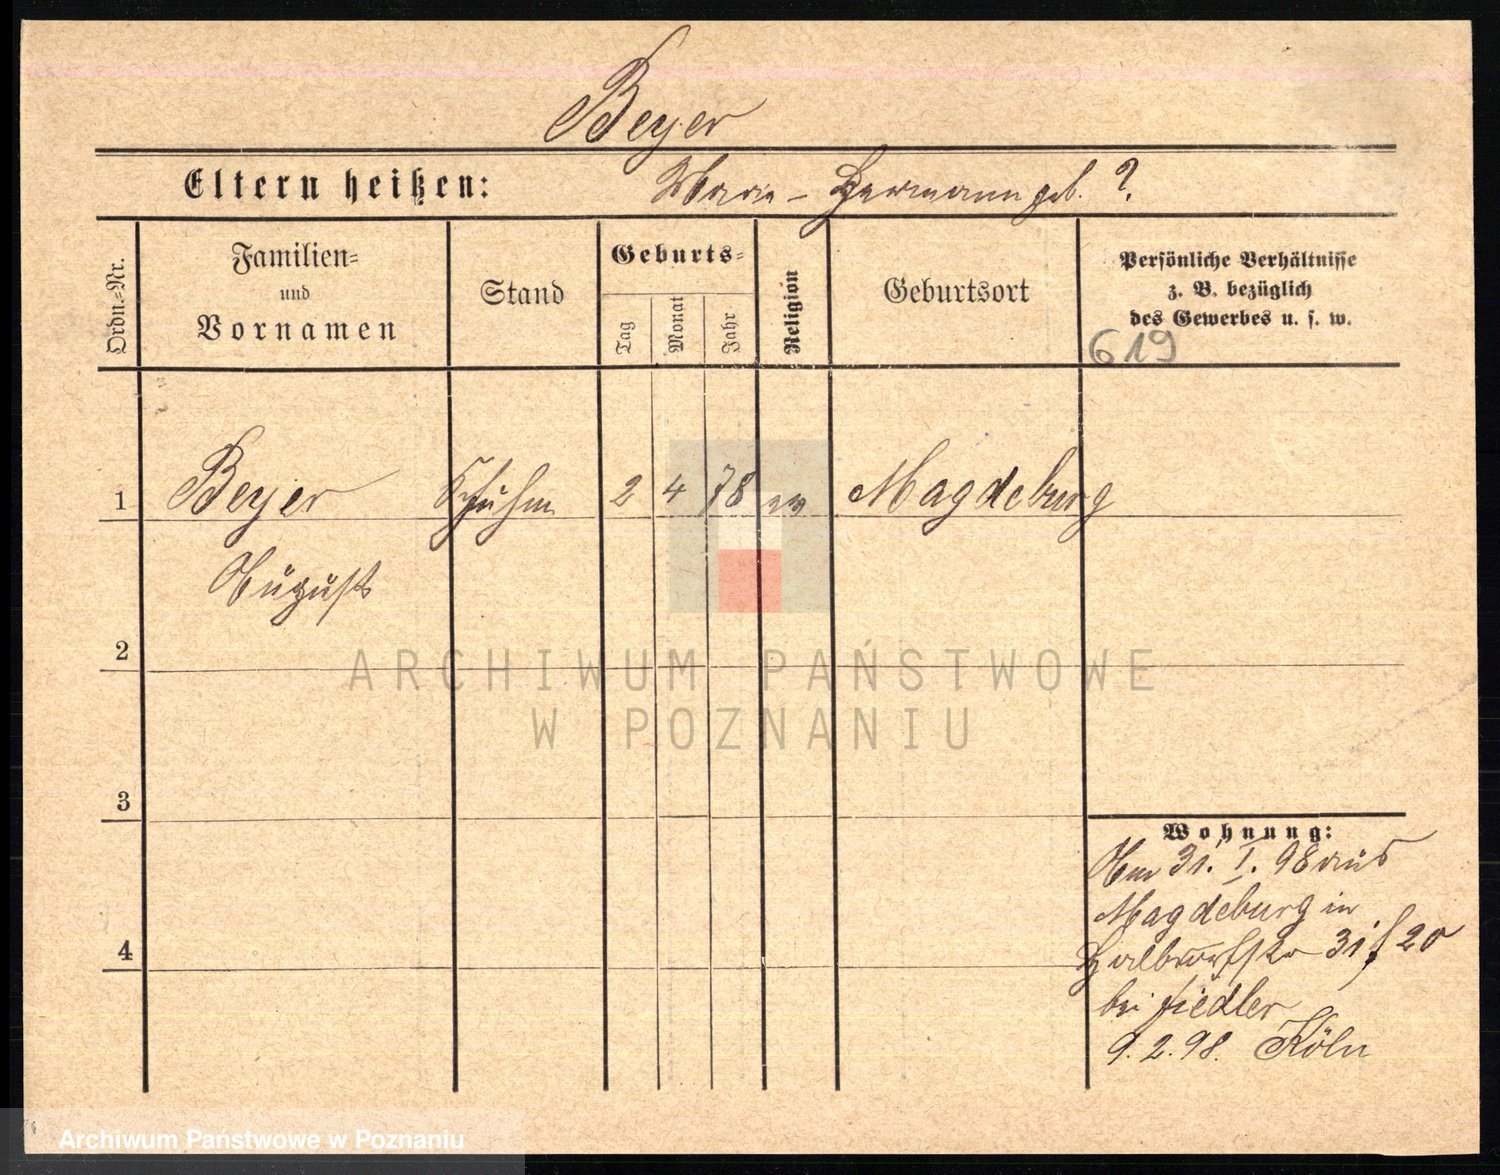 Beyer
Eltern heißen: Marie - Hermann geb. ?
Ordn.=Nr.
Familien=
und
Vornamen
Stand
Geburts=
Tag
Monat
Jahr
Religion
Geburtsort
Persönliche Verhältnisse
z. B. bezüglich
des Gewerbes u. s. w.
619
1 Beyer Schuhm 2 4 78 ev Magdeburg
August
2
3
4
Wohnung:
Am 31. I. 98 aus
Magdeburg in
Halbdorfstr 31 f 20
bei Fiedler
9. 2. 98. Köln
ARCHIWUM PAŃSTWOWE
W POZNANIU
Archiwum Państwowe w Poznaniu